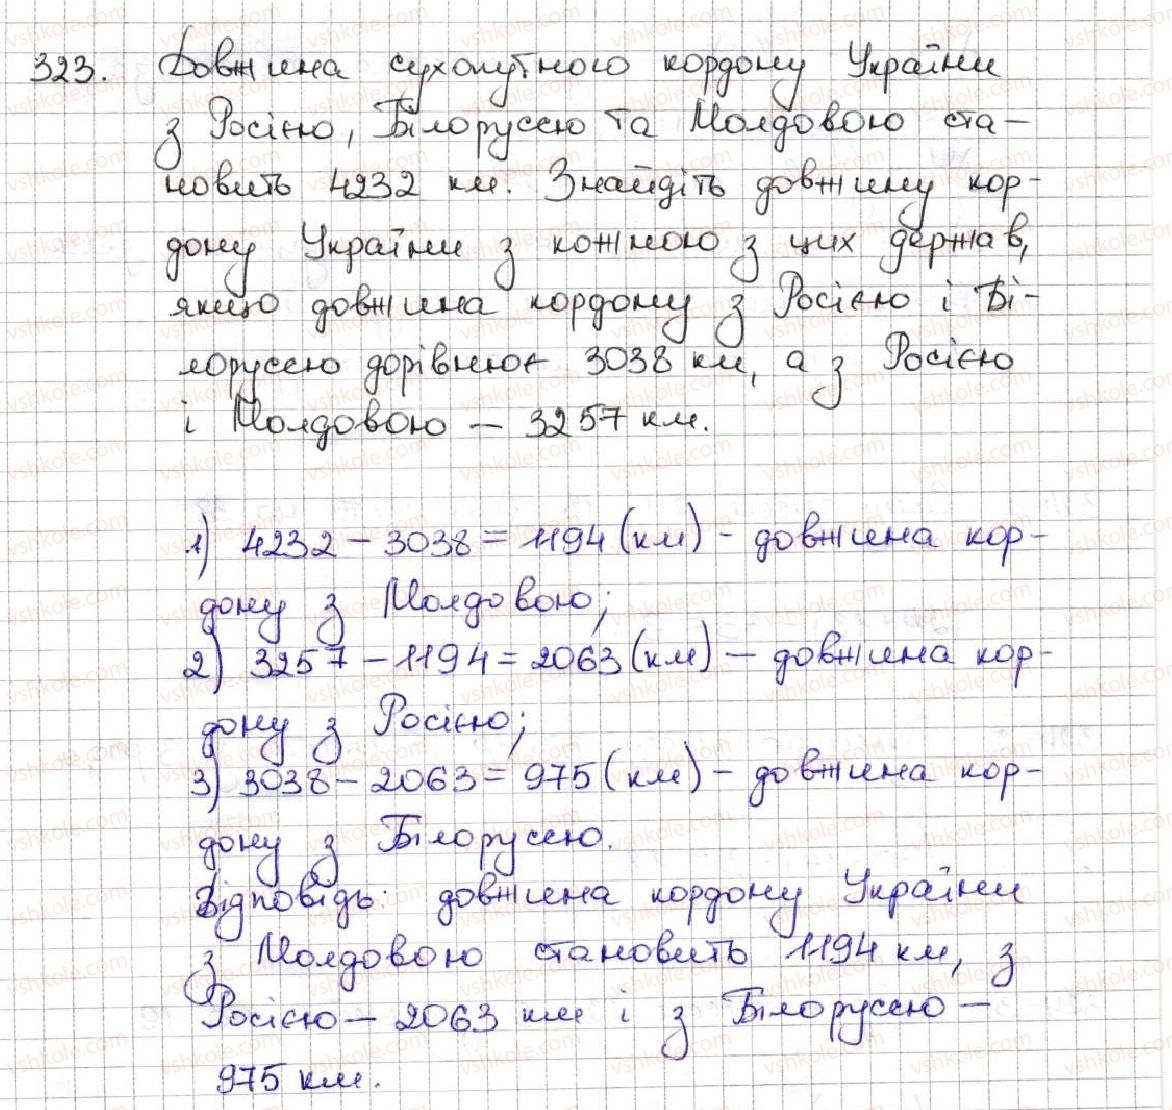 323. Довжина сухопутного кордону України
з Росією, Білоруссю та Молдовою ста-
новить 4232 км. Знайдіть довжину кор-
дону України з кожною з цих держав,
якщо довжина кордону з Росією і Бі-
лоруссю дорівнює 3038 км, а з Росією
і Молдовою — 3257 км.
1) 4232 - 3038 = 1194 (км) - довжина кор-
дону з Молдовою;
2) 3257 - 1194 = 2063 (км) - довжина кор-
дону з Росією;
3) 3038 - 2063 = 975 (км) - довжина кор-
дону з Білоруссю.
Відповідь: довжина кордону України
з Молдовою становить 1194 км, з
Росією — 2063 км і з Білоруссю —
975 км.